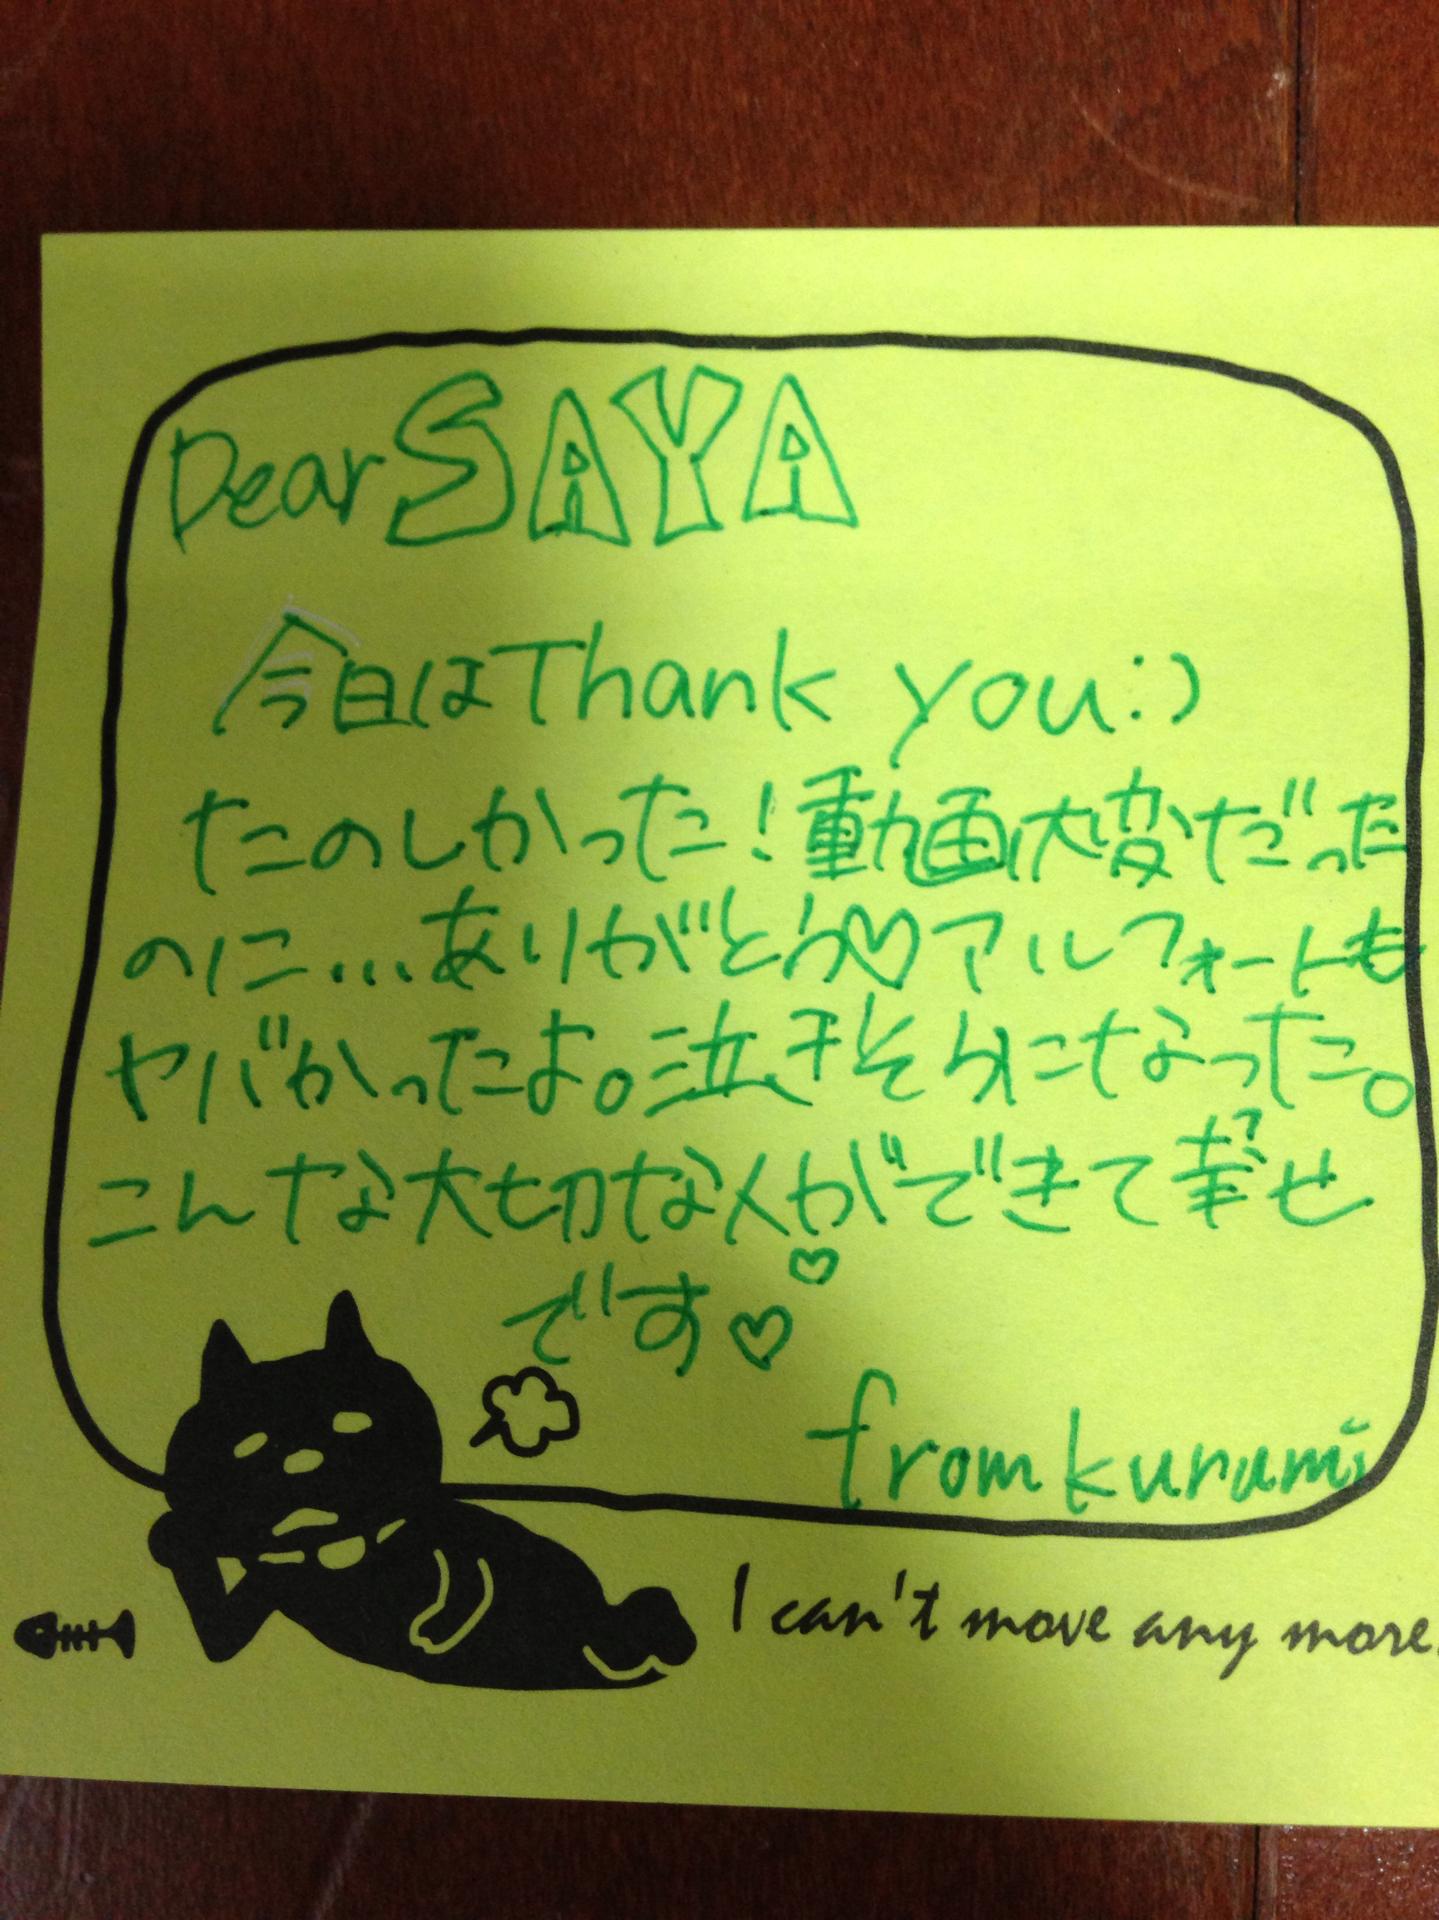 Dear SAYA
今日はThank you:)
たのしかった!動画大変だった
のに...ありがとう♡アルフォートも
ヤバかったよ。泣きそうになった。
こんな大切な人ができて幸せ?
です♡♡
from kurumi
I can't move any more.